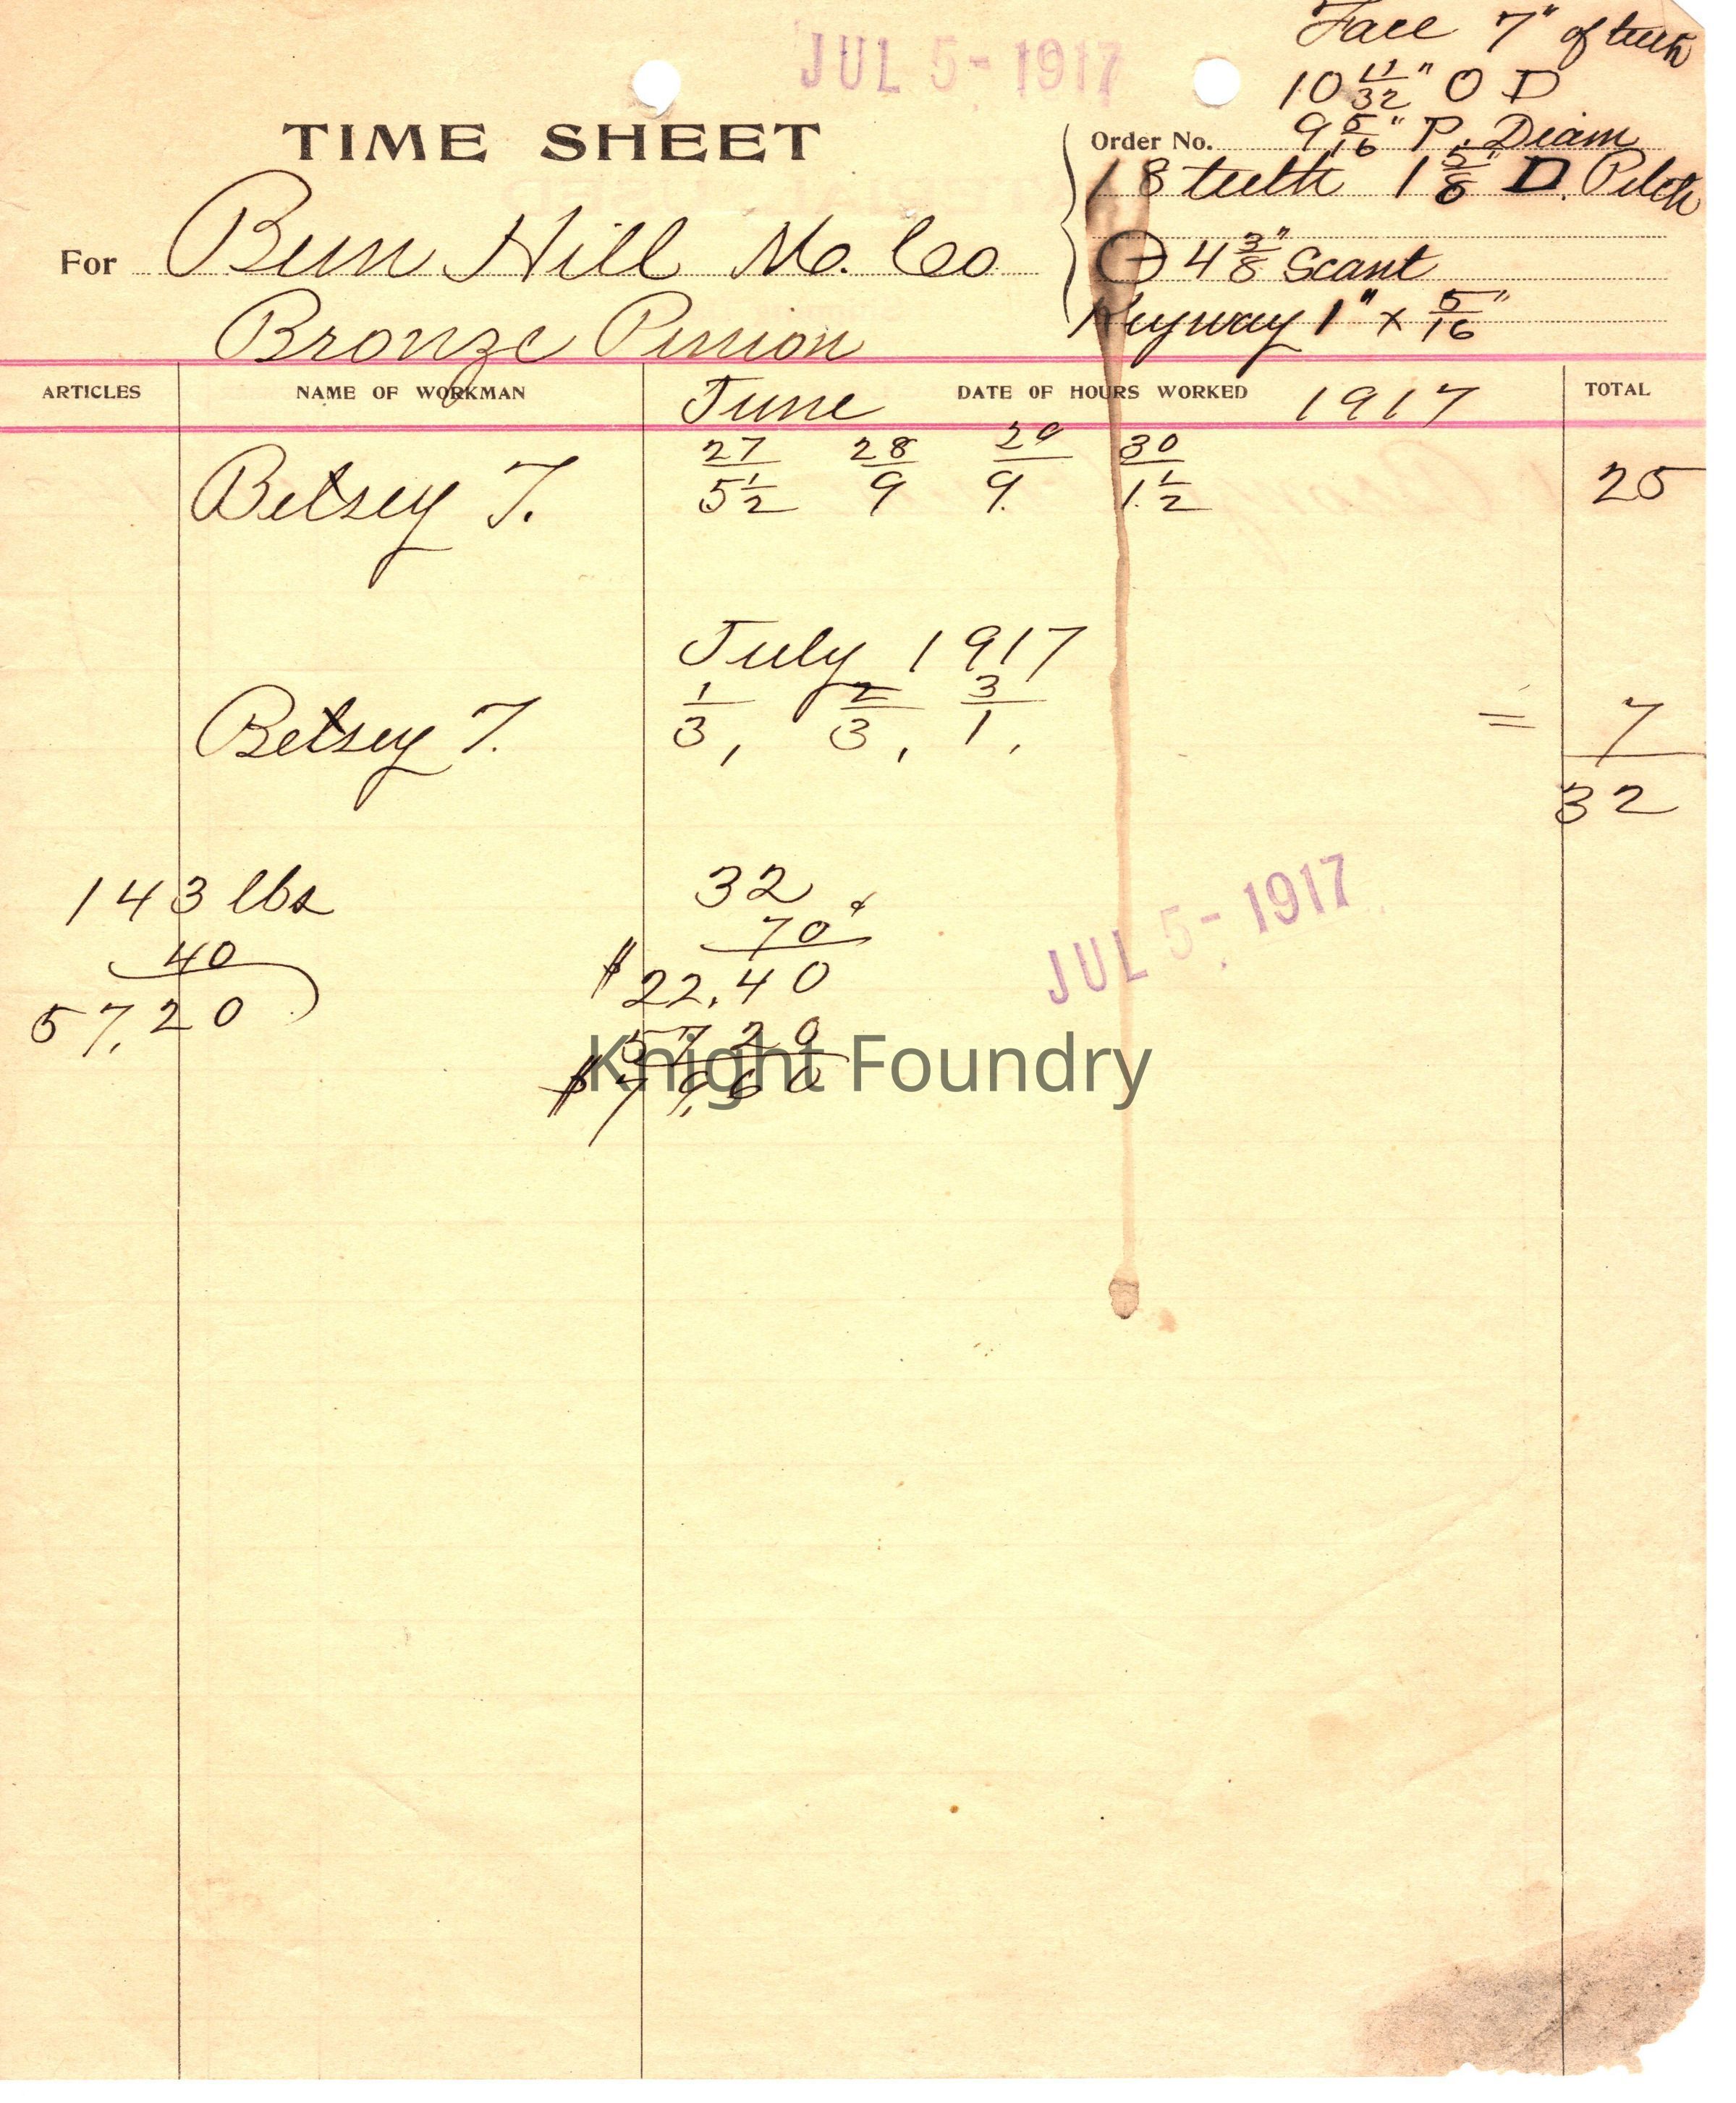 JUL 5 - 1917
Face 7" of teeth
10 11/32" O D
TIME SHEET
Order No. 9 5/16" P. Diam
18 teeth 1 5/8" D. Pitch
For Bun Hill M. Co
4 3/8" Scant
Bronze Pinion
Keyway 1" x 5/16"
ARTICLES NAME OF WORKMAN June DATE OF HOURS WORKED 1917 TOTAL
27 28 29 30
Betsey T. 5 1/2 9 9. 1 1/2 25
July 1917
1 2 3
Betsey T. 3, 3, 1, = 7
32
143 lbs 32
40 70¢
57,20 $22.40
JUL 5 - 1917
57 20
$79,60
Knight Foundry